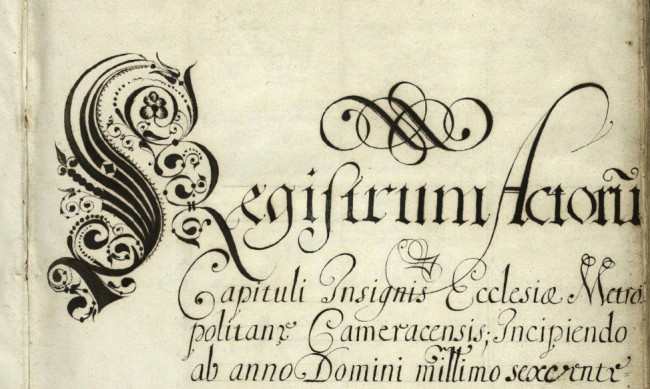 Registrum Actorū
Capituli Insignis Ecclesiæ Metro
politanę Cameracensis; Incipiendo
ab anno Domini millimo sexcente